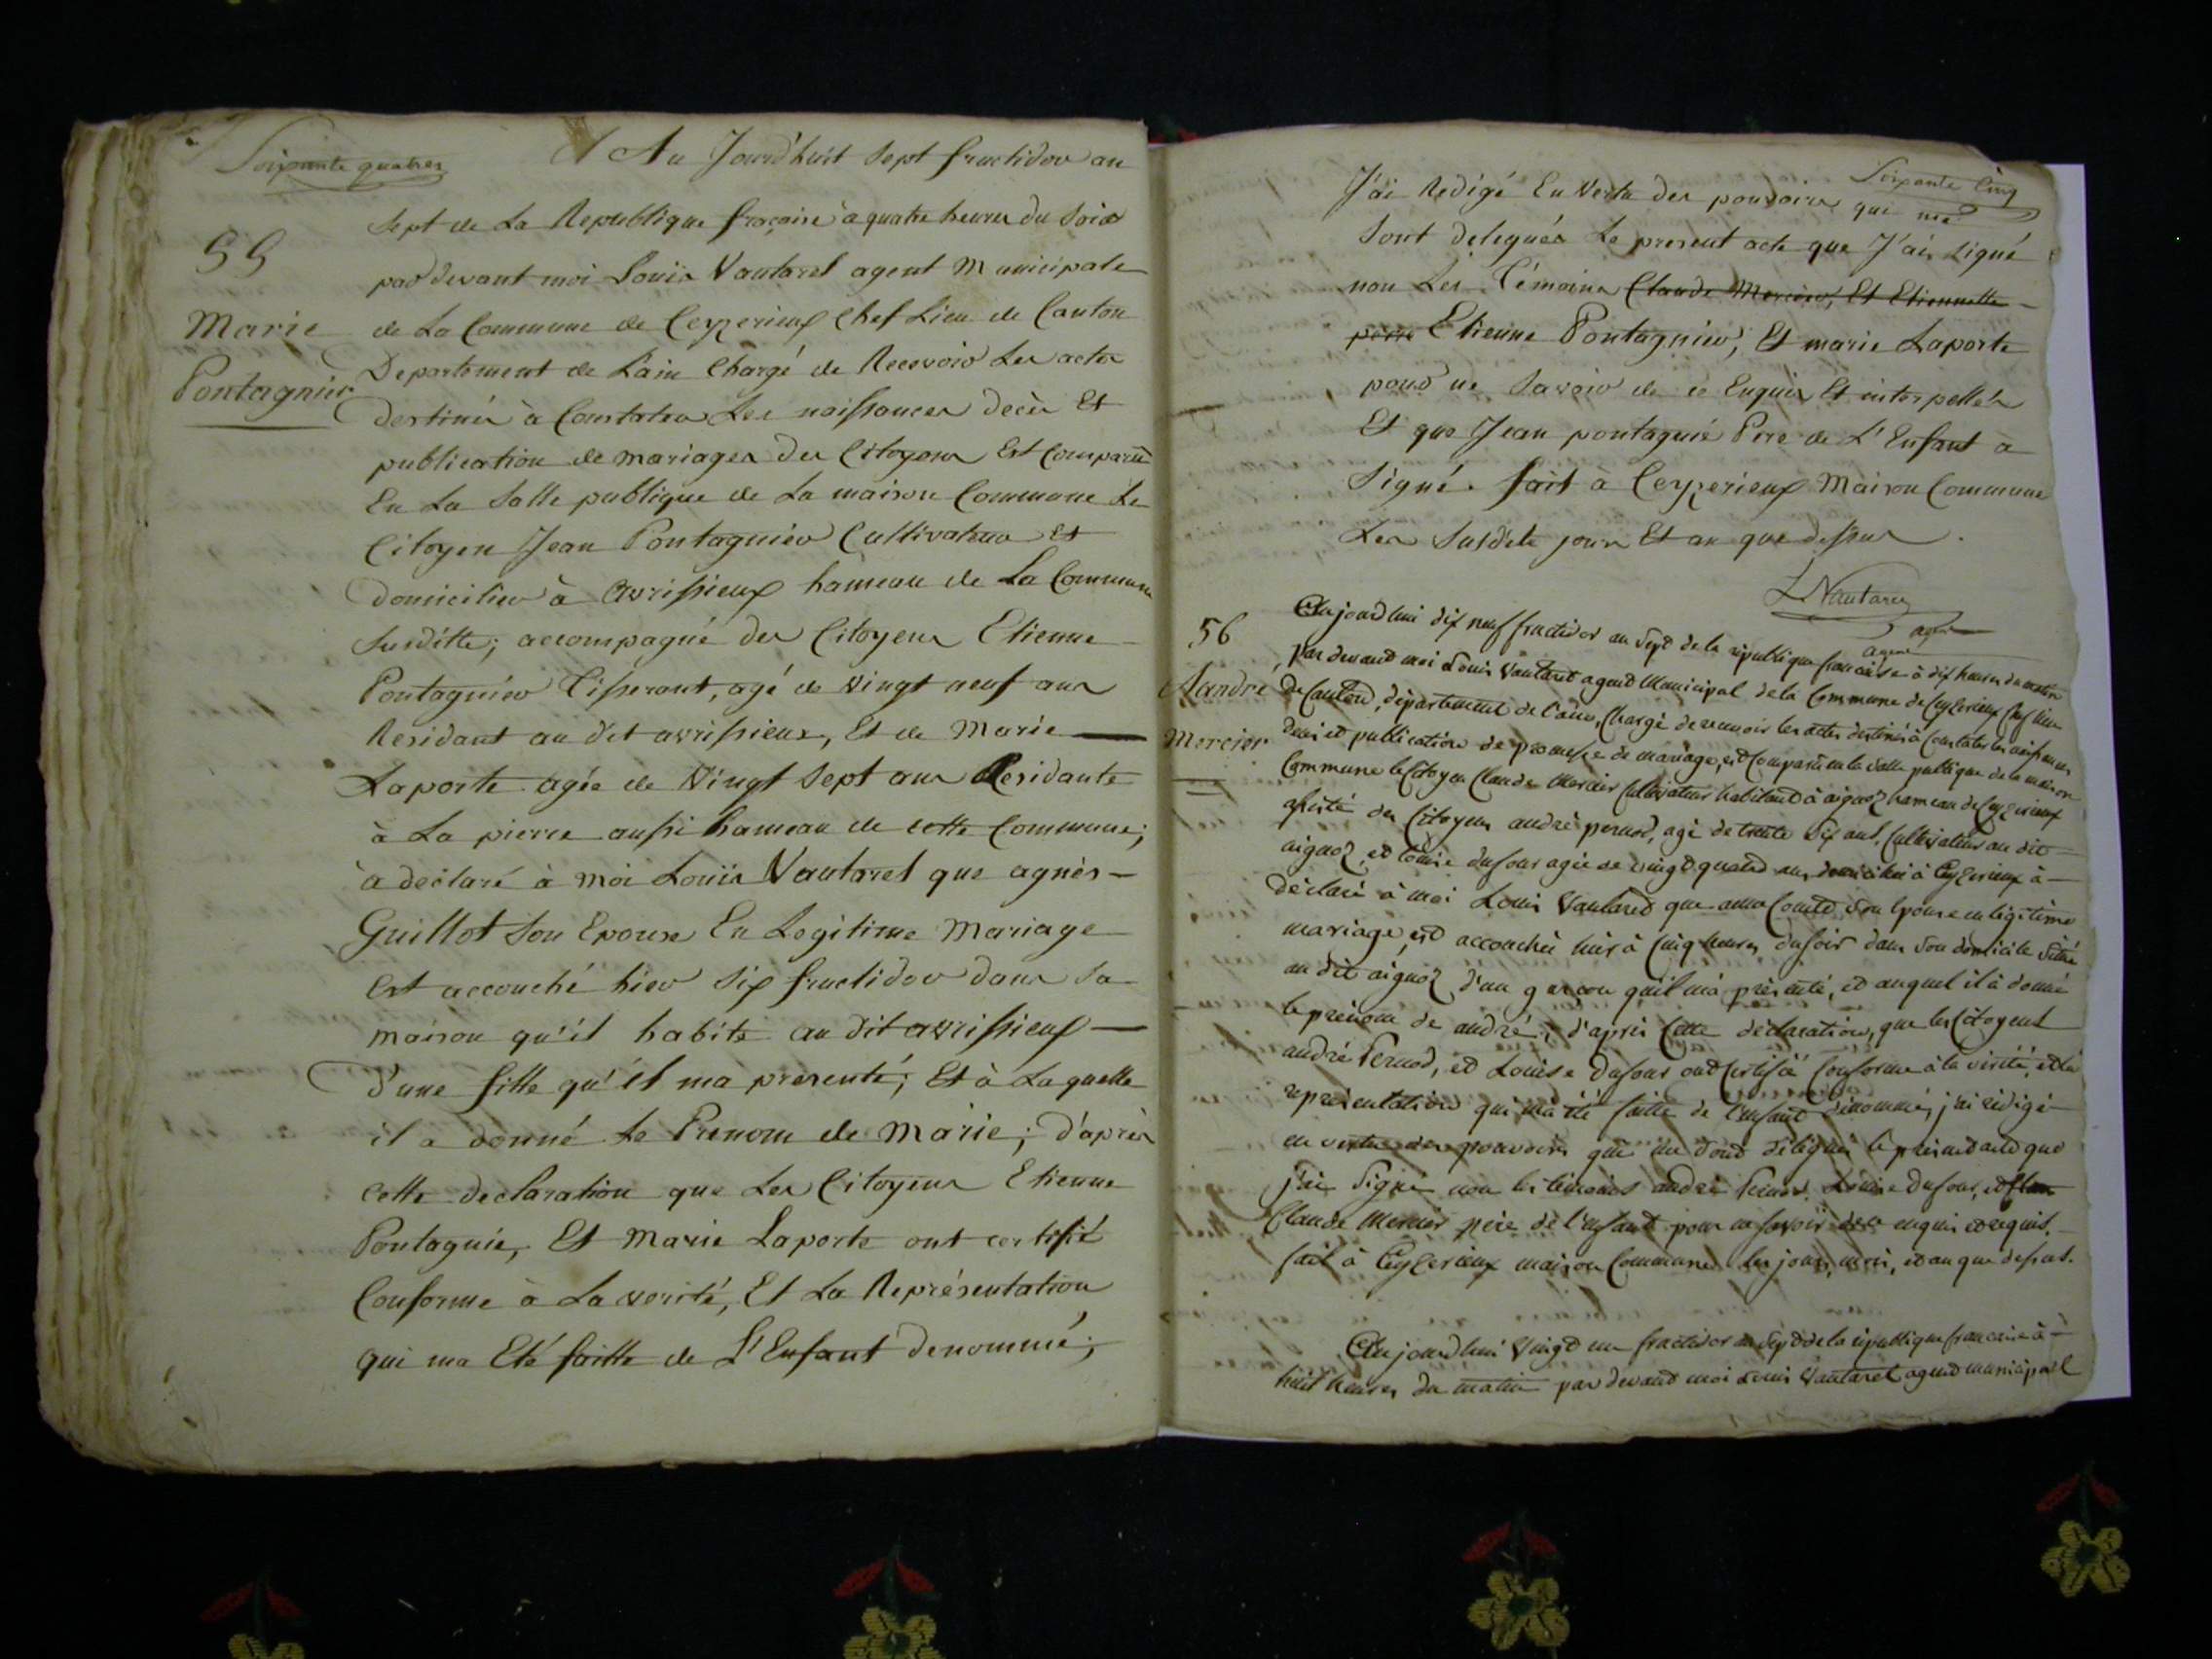 Soixante quatres
Au Jourd'huit Sept fructidor an
Sept de La Republique fraçaise à quatre heures du Soir
55
par devant moi Louis Vautaret agent Municipale
Marie
de La Commune de Ceyzerieux Chef Lieu de Canton
Pontagnier
Departement de L'ain Chargé de Recevoir Les actes
destinés à Constater Les naissances decès Et
publication de mariages des Citoyens Est Comparü
En La Salle publique de La maison Commune Le
Citoyen Jean Pontagnier Cultivateur Et
domicilier à avrissieux hameau de La Commune
Susditte; accompagné des Citoyens Etienne
Pontagnier Tisserant, agé de Vingt neuf ans
Residant au dit avrissieux, Et de Marie
Laporte agée de Vingt Sept ans Residante
à La pierre aussi hameau de cette Commune;
à déclaré à moi Louis Vautaret que agnès
Guillot Son Epouse En Legitime Mariage
Est accouché hier Six fructidor dans Sa
maison qu'il habite au dit avrissieux
D'une fille qu'il ma presenté; Et à Laquelle
il a donné Le Prenom de Marie; d'après
cette declaration que Les Citoyens Etienne
Pontagnie, Et Marie Laporte ont certifié
Conforme à La verité, Et La Représentation
qui ma Eté faitte de L'Enfant denommé;
Soixante Cinq
J'ai Redigé En Vertu des pouvoirs qui me
Sont delegués Le present acte que J'ai Signé
non Les Témoins Claude Mercier, Et Etiennette
Etienne Pontagnier, Et marie Laporte
pour ne Savoir de ce Enquis Et interpellés
Et que Jean pontagnié Pere de L'Enfant à
Signé. fait à Ceyzerieux Maison Commune
Les Susdits jours Et an que dessus.
L Vautaret
agent
56
Aujourdhui dix neuf fructidor an Sept de la république francaise à dix heures du matin
par devant moi Louis Vautaret agent Municipal de la Commune de Ceyzerieux Chef lieu
Aandré
de Canton, département de l'ain, Chargé de recevoir les actes destinés à Constater les naissances
Mercier
deces et publication de promesse de mariage, est Comparü en la Salle publique de la maison
Commune le Citoyen Claude Mercier Cultivateur habitant à aignoz hameau de Ceyzerieux
assisté des Citoyens andré pernod, agé de trente Six ans, Cultivateur au dit
aignoz, et Louise dufour agée de vingt quatre ans domiciliée à Ceyzerieux à
déclaré à moi Louis Vautaret que Son Epouse en légitime
mariage, est accouchée hier à Cinq heures du Soir dans Son domicile Situé
au dit aignoz d'un garçon quil m'a présenté, et auquel il à donné
le prénom de andré; d'après Cette déclaration, que les Citoyens
andré Pernod, et Louise dufour ont Certifié Conforme à la vérité, et la
représentation qui m'a été faitte de l'enfant dénommé, j'ai rédigé
en vertu des pouvoirs qui me Sont délégués le présent acte que
j'ai Signé non les témoins andré Pernod Louise dufour, et
Claude Mercier père de l'enfant pour ne Savoir de ce enquis et requis.
fait à Ceyzerieux maison Commune les jours, mois, et an que dessus.
Aujourdhui Vingt un fructidor an Sept de la république francaise à
huit heures du matin par devant moi Louis Vautaret agent municipal